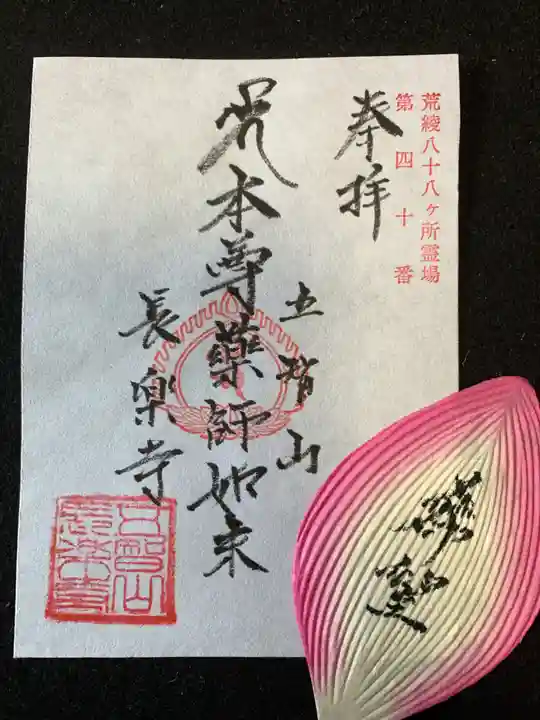 荒綾八十八ヶ所霊場
第四十番
奉拝
五智山
本尊薬師如来
長楽寺